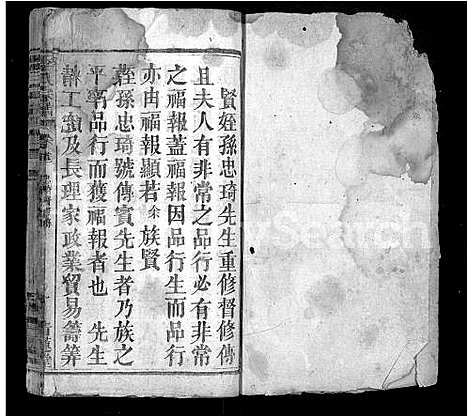 賢姪孫忠琦先生重修督修傳
且夫人有非常之品行必有非常
之福報蓋福報因品行生而品行
亦由福報顯若余族賢
姪孫忠琦號傳賓先生者乃族之
平等品行而獲福報者也 先生
讀工書及長理家政業貿易籌筭
Search